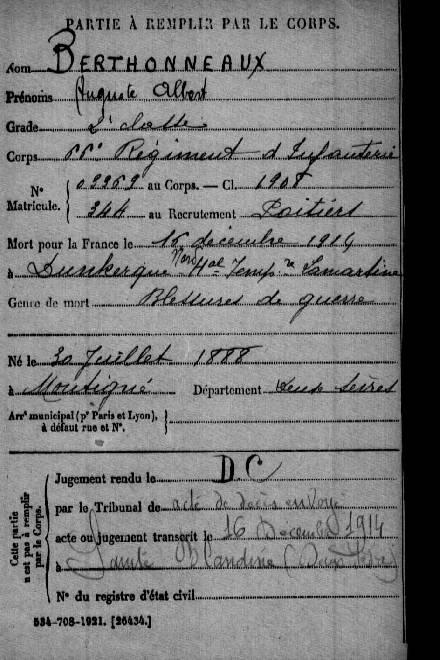 PARTIE À REMPLIR PAR LE CORPS.
Nom BERTHONNEAUX
Prénoms Auguste Albert
Grade 2e classe
Corps Régiment d'Infanterie
N° Matricule. 03969 au Corps. — Cl. 1908
344 au Recrutement Poitiers
Mort pour la France le 16 décembre 1914
à Dunkerque Hal Temp. re Lamartine
Genre de mort Blessures de guerre
Né le 30 Juillet 1888
à Montigné Département Deux Sèvres
Arrt municipal (pr Paris et Lyon), à défaut rue et N°.
Cette partie n'est pas à remplir par le Corps.
Jugement rendu le D.C
par le Tribunal de acte de décès envoyé
acte ou jugement transcrit le 16 Décembre 1914
à Sainte Blandine (Deux Sèvres)
N° du registre d'état civil
534-708-1921. [26434.]